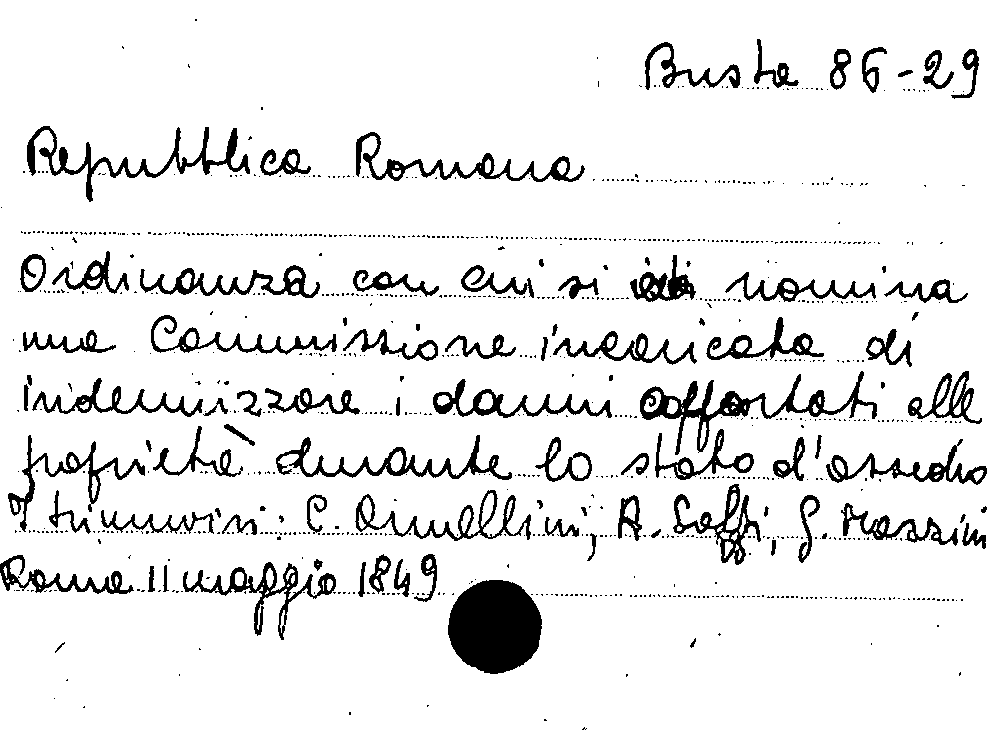 Busta 86-29
Repubblica Romana
Ordinanza con cui si nomina
una Commissione incaricata di
indennizzare i danni apportati alle
proprietà durante lo stato d'assedio
I triumviri: C. Armellini, A. Saffi, G. Mazzini
Roma 11 maggio 1849